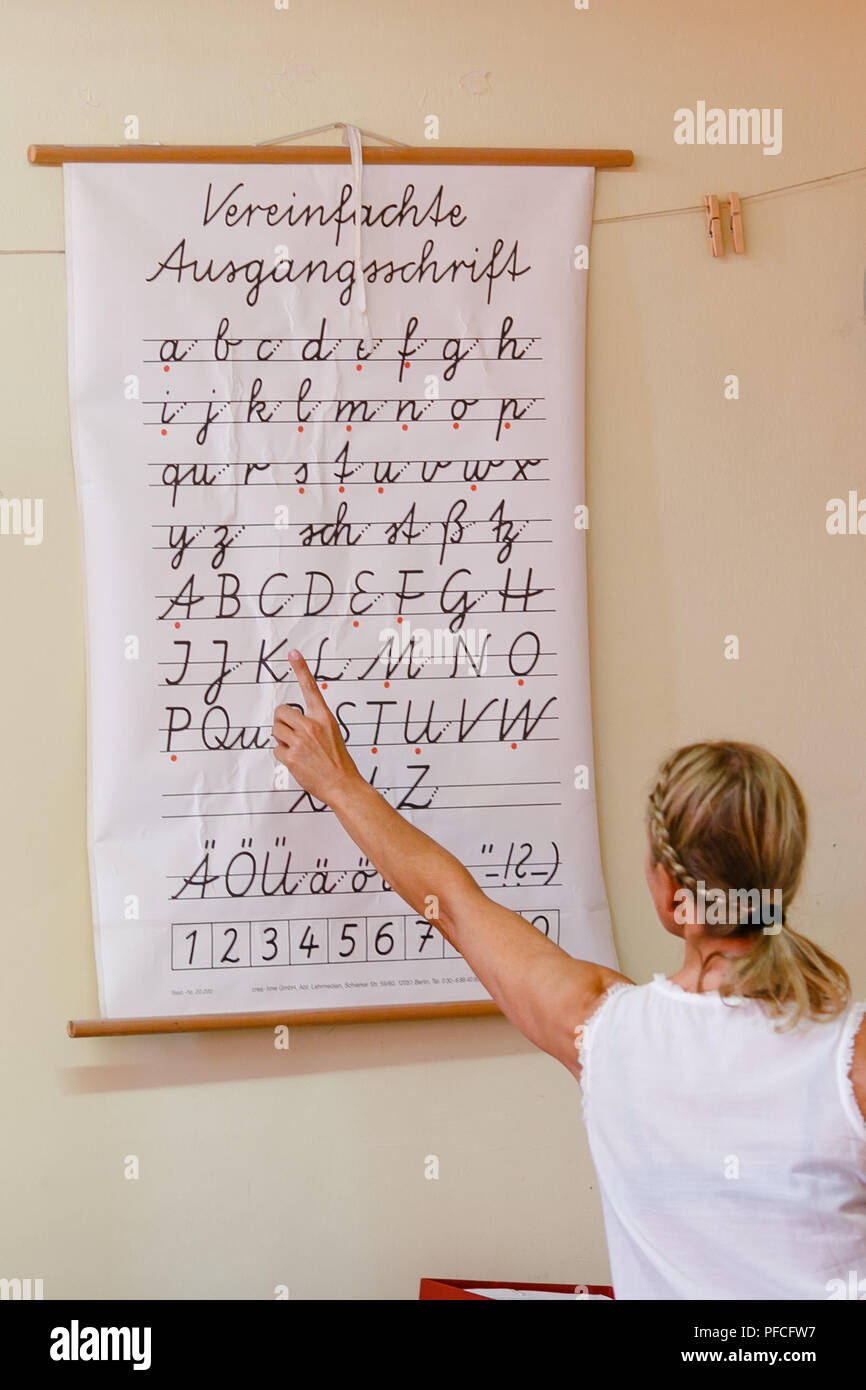 Vereinfachte
Ausgangsschrift
a b c d e f g h
i j k l m n o p
qu r s t u v w x
y z sch st ß tz
A B C D E F G H
I J K L M N O
P Qu S T U V W
X Z
Ä Ö Ü ä ö " - ! ? - )
1 2 3 4 5 6 7 0
Best.-Nr. 20.220
GmbH, Abt. Lehrmedien, Schierker Str. 59/60, 12051 Berlin, Tel. 0 30-6 88 40 8
a alamy
alamy
Image ID: PFCFW7
www.alamy.com